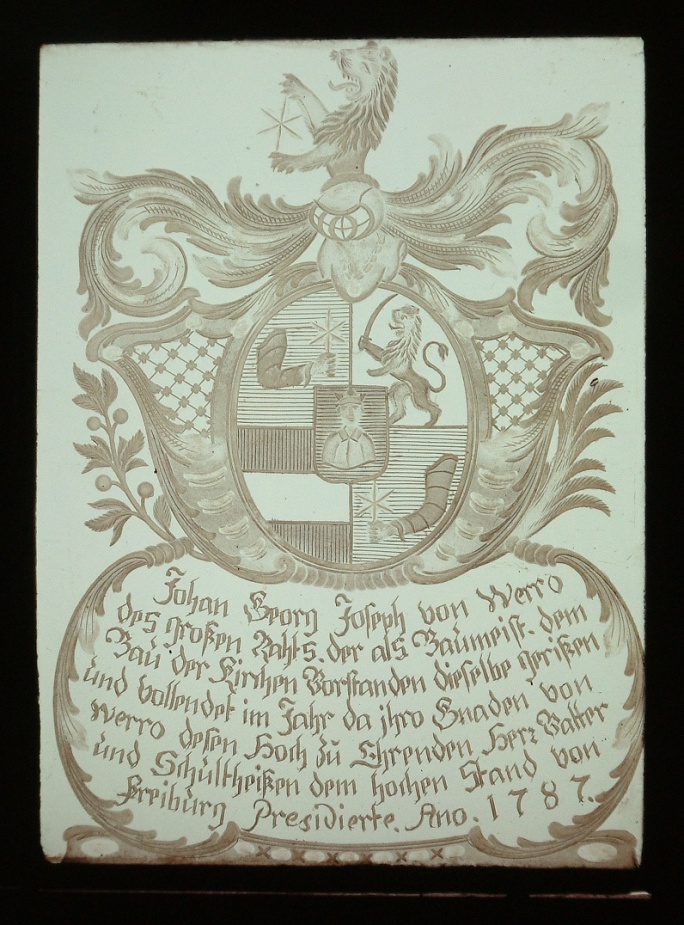 Johan Georg Joseph von Werro
des großen Rahts. der als Baumeist. dem
Bau der Kirchen Vorstanden dieselbe gerißen
und vollendet im Jahr da jhro Gnaden von
Werro deßen Hoch zu Ehrenden Herr Vatter
und Schultheißen dem hochen Stand von
Freiburg Presidierte. Ano. 1787.